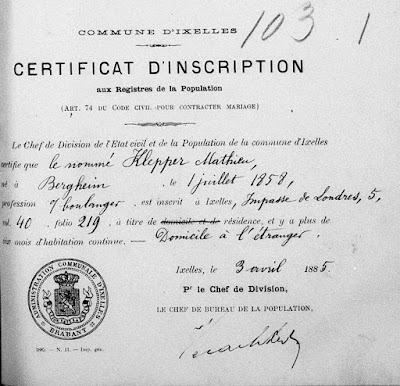 103. 1
COMMUNE D'IXELLES
CERTIFICAT D'INSCRIPTION
aux Registres de la Population
(ART. 74 DU CODE CIVIL POUR CONTRACTER MARIAGE)
Le Chef de Division de l'Etat civil et de la Population de la commune d'Ixelles
certifie que le nommé Klepper Mathieu,
né à Bergheim, le 1 juillet 1858,
profession boulanger, est inscrit à Ixelles, Impasse de Londres, 5,
vol. 40, folio 219, à titre de domicile et de résidence, et y a plus de
mois d'habitation continue. — Domicile à l'étranger.
Ixelles, le 3 avril 1885.
Pr le Chef de Division,
LE CHEF DE BUREAU DE LA POPULATION,
ADMINISTRATION COMMUNALE D'IXELLES
BRABANT
N. 11. — Imp. gén.